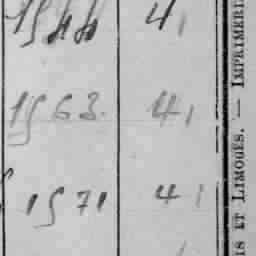 1544 41
1563. 41
1571 41
IS ET LIMOGES. — IMPRIMERI